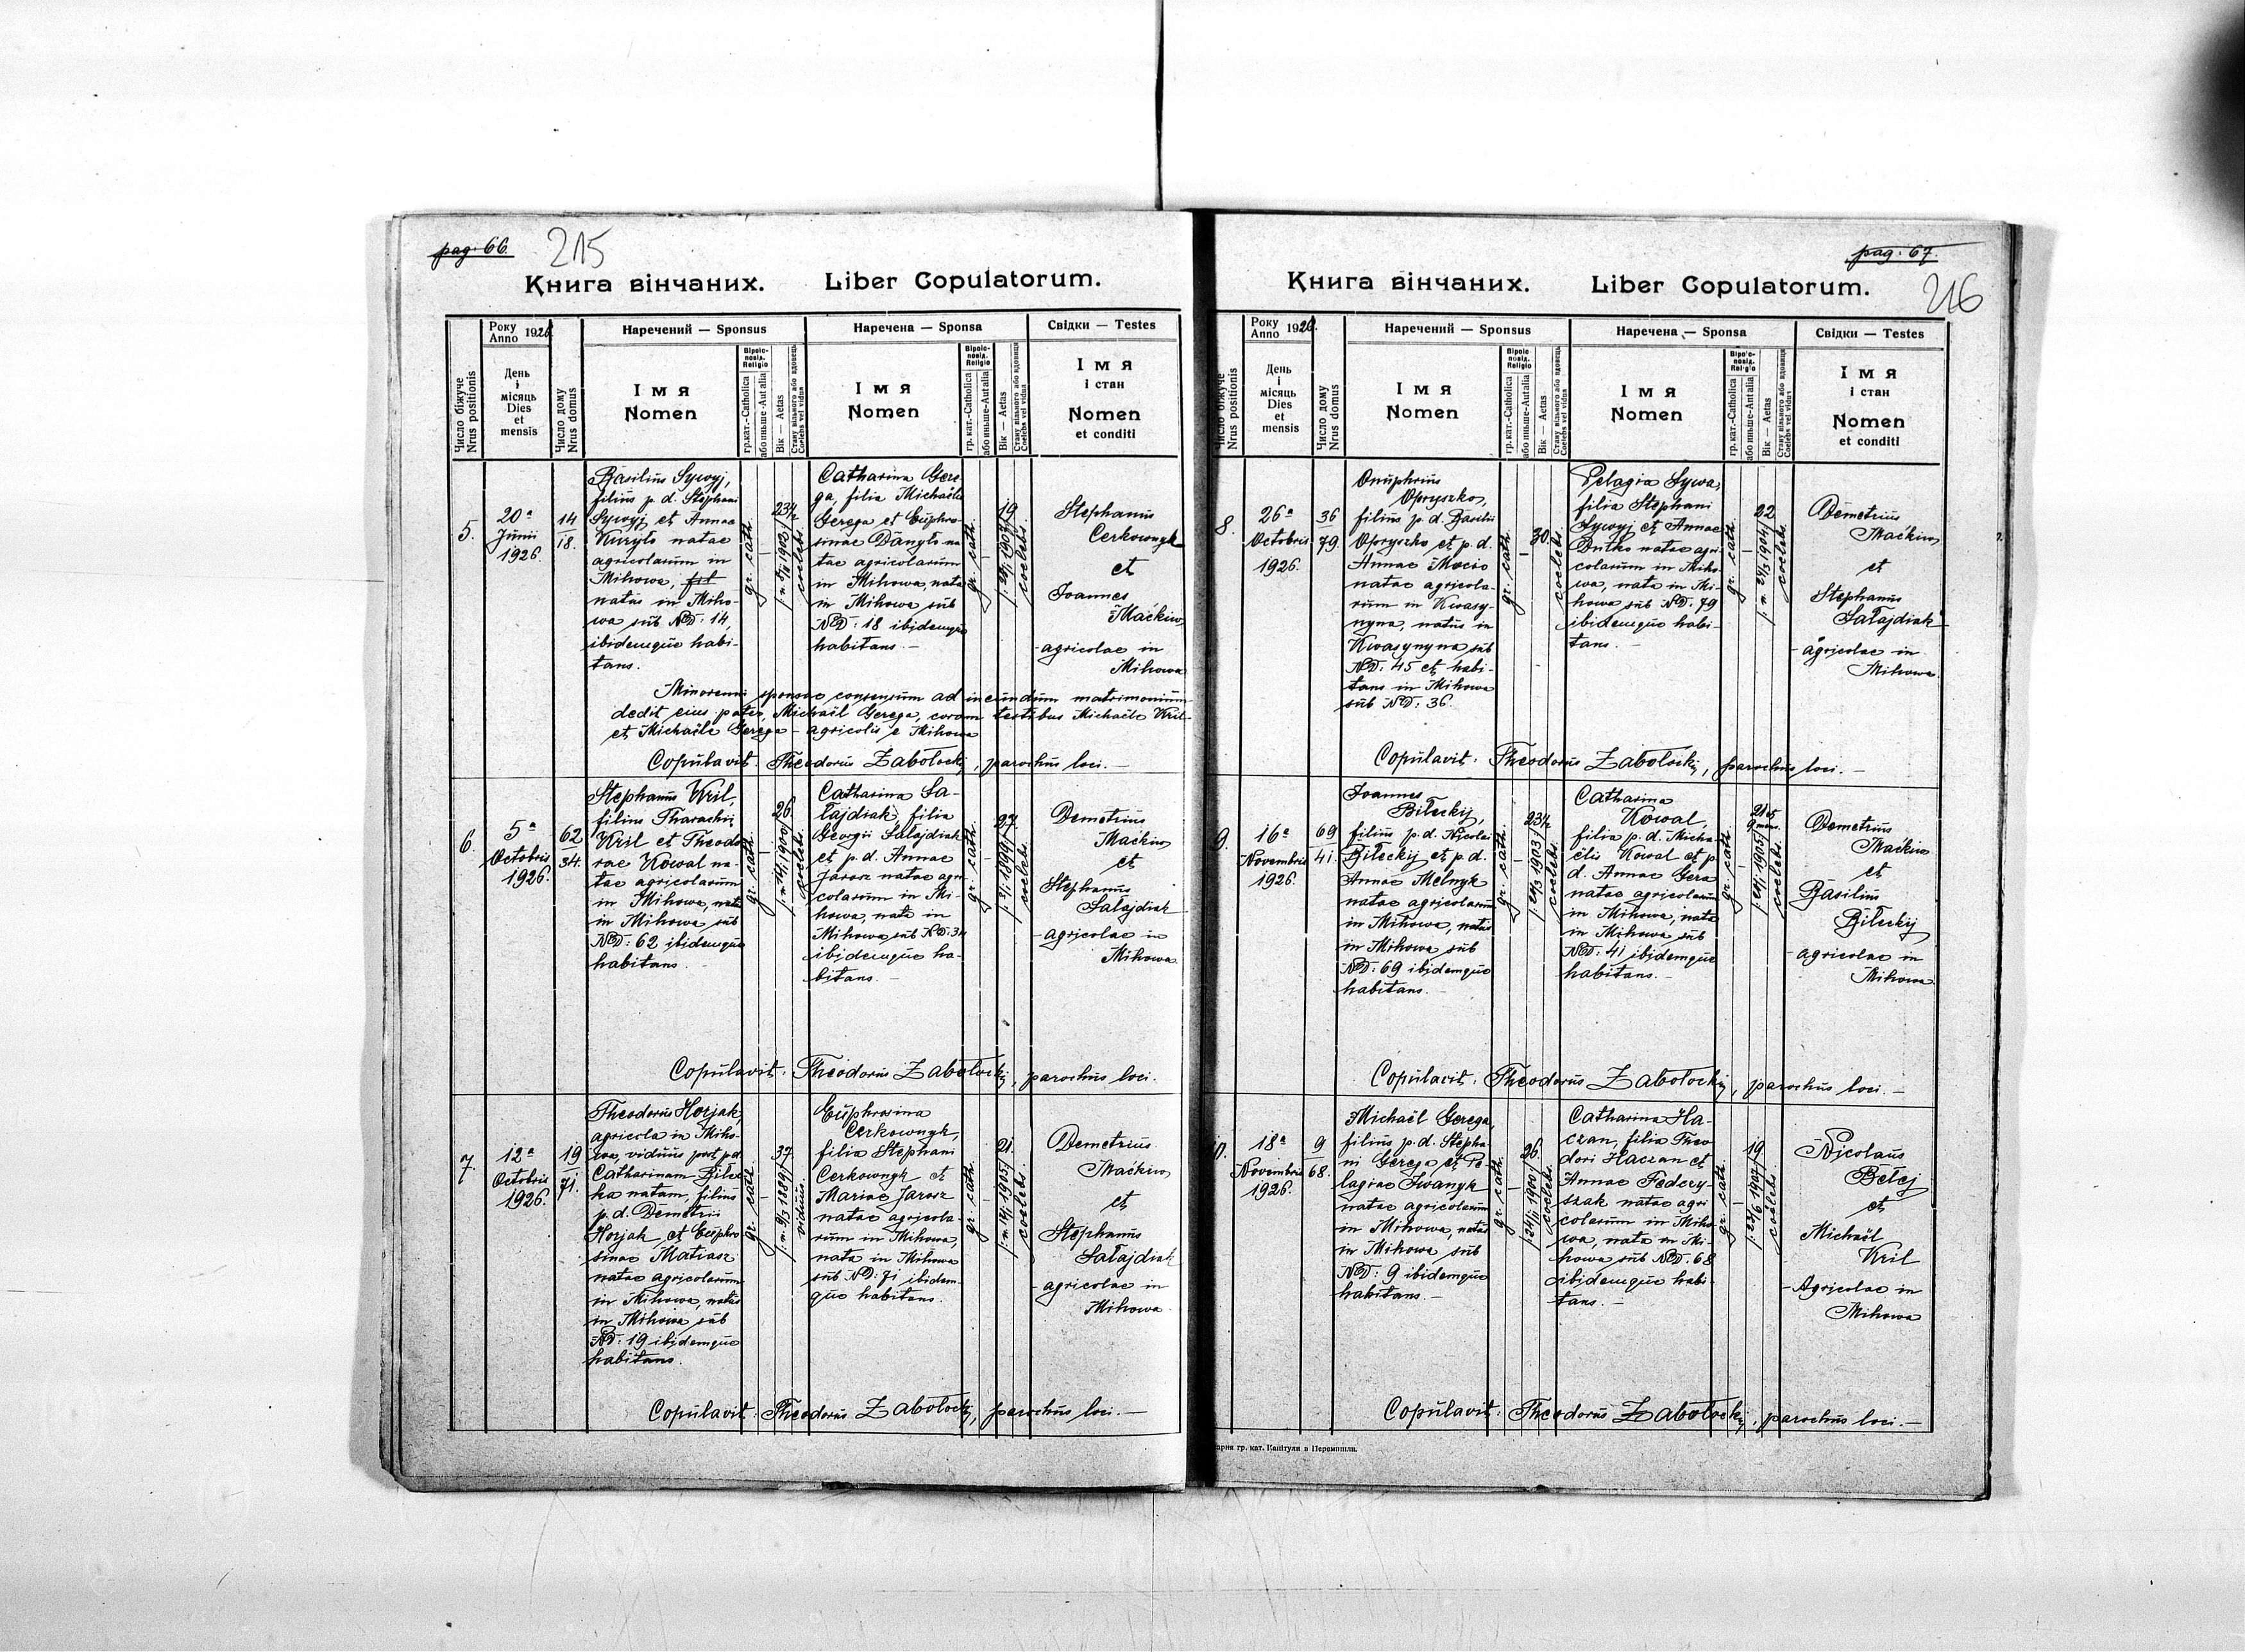 pag. 66.
215
Книга вінчаних. Liber Copulatorum.
Року
Anno 1926.
Наречений — Sponsus
Наречена — Sponsa
Свідки — Testes
Число біжуче
Nrus positionis
День
і
місяць
Dies
et
mensis
Число дому
Nrus domus
Імя
Nomen
Віроіс-
повід.
Religio
гр.кат.-Catholica
або иньше-Aut alia
Вік — Aetas
Стану вільного або вдовець
Coelebs vel vidus
Імя
Nomen
Віроіс-
повід.
Religio
гр. кат.-Catholica
або иньше-Aut alia
Вік — Aetas
Стану вільного або вдовиця
Coelebs vel vidua
Імя
і стан
Nomen
et conditi
5.
20ª
Junii
1926.
14
18.
Basilius Sywyj,
filius p. d. Stephani
Sywyj et Annae
Kuryło natae
agricolarum in
Mihowa,
natus in Miho-
wa sub ND: 14,
ibidemque habi-
tans.
gr. cath.
—
23½
coelebs.
Catharina Gere-
ga, filia Michaëlis
Gerega et Euphro-
sinae Danyło na-
tae agricolarum
in Mihowa, nata
in Mihowa sub
ND: 18 ibidemque
habitans. —
gr. cath.
—
19
coelebs.
Stephanus
Cerkownyk
et
Joannes
Maćkiw
- agricolae in
Mihowa
Minorenni sponsae consensum ad ineundum matrimonium
dedit eius pater, Michaël Gerega, coram testibus Michaële Kril
et Michaële Gerega - agricolis e Mihowa
Copulavit: Theodorus Zabołockij, parochus loci. —
6.
5ª
Octobris
1926.
62
34.
Stephanus Kril,
filius Tharachii
Kril et Theodo-
rae Kowal na-
tae agricolarum
in Mihowa, natus
in Mihowa sub
ND: 62 ibidemque
habitans. —
gr. cath.
—
26.
coelebs.
Catharina Sa-
łajdiak, filia
Georgii Sałajdiak
et p. d. Annae
Jarosz natae agri-
colarum in Mi-
howa, nata in
Mihowa sub ND: 34
ibidemque ha-
bitans. —
gr. cath.
—
27.
coelebs.
Demetrius
Maćkiw
et
Stephanus
Sałajdiak
- agricolae in
Mihowa.
Copulavit: Theodorus Zabołockij, parochus loci.
7.
12ª
Octobris
1926.
19
71.
Theodorus Horjak,
agricola in Miho-
wa, viduus post p. d.
Catharinam Biłec-
ka natam, filius
p. d. Demetrii
Horjak et Euphro-
sinae Matiasz
natae agricolarum
in Mihowa, natus
in Mihowa sub
ND: 19 ibidemque
habitans.
gr. cath.
—
37.
viduus.
Euphrosina
Cerkownyk,
filia Stephani
Cerkownyk et
Mariae Jarosz
natae agricola-
rum in Mihowa,
nata in Mihowa
sub ND: 71 ibidem-
que habitans.
gr. cath.
—
21.
coelebs.
Demetrius
Maćkiw
et
Stephanus
Sałajdiak
- agricolae in
Mihowa.
Copulavit: Theodorus Zabołockij, parochus loci. —
pag. 67.
216
Книга вінчаних. Liber Copulatorum.
Року
Anno 1926.
Наречений — Sponsus
Наречена — Sponsa
Свідки — Testes
Число біжуче
Nrus positionis
День
і
місяць
Dies
et
mensis
Число дому
Nrus domus
Імя
Nomen
Віроіс-
повід.
Religio
гр. кат.-Catholica
або иньше-Aut alia
Вік — Aetas
Стану вільного або вдовець
Coelebs vel vidus
Імя
Nomen
Віроіс-
повід.
Religio
гр. кат.-Catholica
або иньше-Aut alia
Вік — Aetas
Стану вільного або вдовиця
Coelebs vel vidua
Імя
і стан
Nomen
et conditi
8.
26ª
Octobris
1926.
36
79.
Onuphrius
Opryszko,
filius p. d. Basilii
Opryszko et p. d.
Annae Mocio
natae agricola-
rum in Kwasy-
nyna, natus in
Kwasynyna sub
ND: 45 et habi-
tans in Mihowa
sub ND: 36.
gr. cath.
—
30.
coelebs.
Pelagia Sywa,
filia Stephani
Sywyj et Annae
Dutko natae agri-
colarum in Miho-
wa, nata in Mi-
howa sub ND: 79
ibidemque habi-
tans. —
gr. cath.
—
22.
coelebs.
Demetrius
Maćkiw
et
Stephanus
Sałajdiak
- agricolae in
Mihowa.
Copulavit: Theodorus Zabołockij, parochus loci. —
9.
16ª
Novembris
1926.
69
41.
Joannes
Biłeckij,
filius p. d. Nicolai
Biłeckij et p. d.
Annae Melnyk
natae agricolarum
in Mihowa, natus
in Mihowa sub
ND: 69 ibidemque
habitans. —
gr. cath.
—
23½
coelebs.
Catharina
Kowal,
filia p. d. Micha-
ëlis Kowal et p.
d. Annae Gera
natae agricolarum
in Mihowa, nata
in Mihowa sub
ND: 41 ibidemque
habitans. —
gr. cath.
—
coelebs.
Demetrius
Maćkiw
et
Basilius
Biłeckij
- agricolae in
Mihowa
Copulavit: Theodorus Zabołockij, parochus loci. —
10.
18ª
Novembris
1926.
9
68.
Michaël Gerega,
filius p. d. Stepha-
ni Gerega et Pe-
lagiae Iwanyk
natae agricolarum
in Mihowa, natus
in Mihowa sub
ND: 9 ibidemque
habitans. —
gr. cath.
—
26.
coelebs.
Catharina Ha-
czan, filia Theo-
dori Haczan et
Annae Federy-
szak natae agri-
colarum in Miho-
wa, nata in Mi-
howa sub ND: 68
ibidemque habi-
tans. —
gr. cath.
—
19
coelebs.
Nicolaus
Bełej
et
Michaël
Kril
- Agricolae in
Mihowa
Copulavit: Theodorus Zabołockij, parochus loci. —
гр. кат. Капітули в Перемишли.